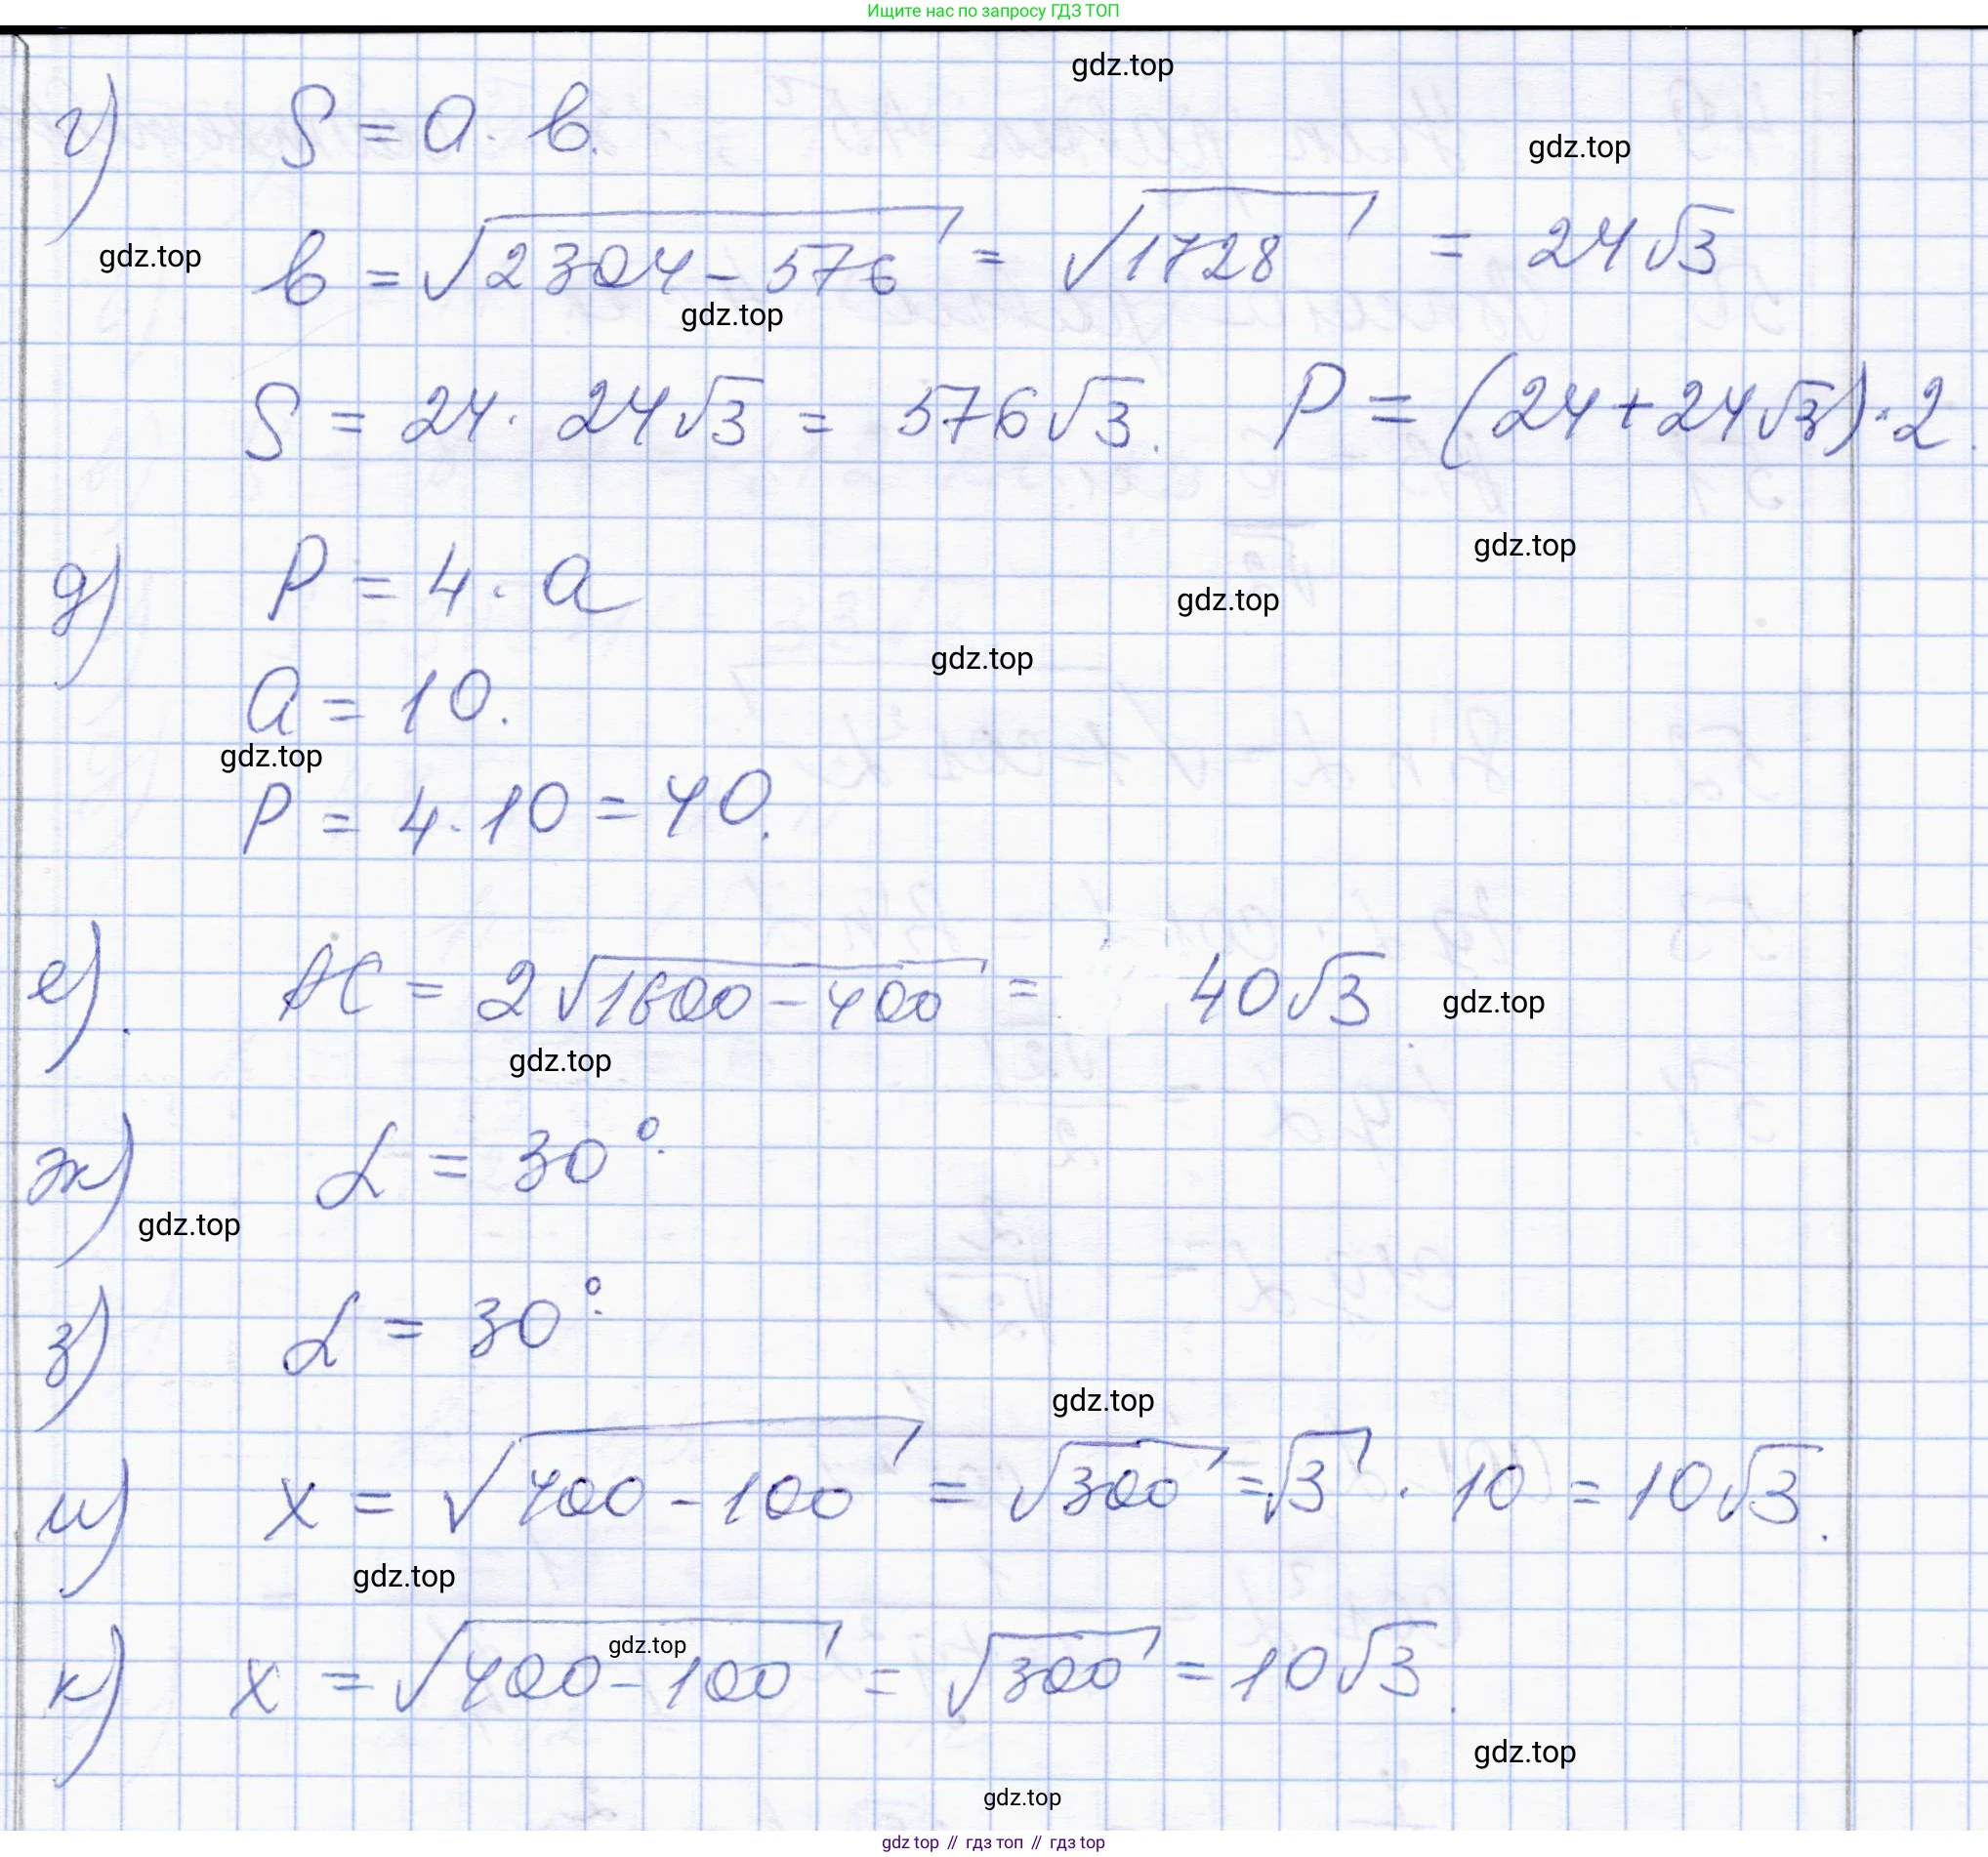 Ищите нас по запросу ГДЗ ТОП
gdz.top
г) S = a · b.
gdz.top
b = √(2304 - 576) = √1728 = 24√3
gdz.top
gdz.top
S = 24 · 24√3 = 576√3. P = (24+24√3)·2.
gdz.top
д) P = 4 · a
gdz.top
gdz.top
a = 10.
gdz.top
P = 4 · 10 = 40.
е). AC = 2√(1600 - 400) = 40√3
gdz.top
gdz.top
ж) α = 30°.
gdz.top
з) α = 30°.
gdz.top
и) x = √(400 - 100) = √300 = √3 · 10 = 10√3.
gdz.top
gdz.top
к) x = √(400 - 100) = √300 = 10√3.
gdz.top
gdz.top
gdz top // гдз топ // гдз top